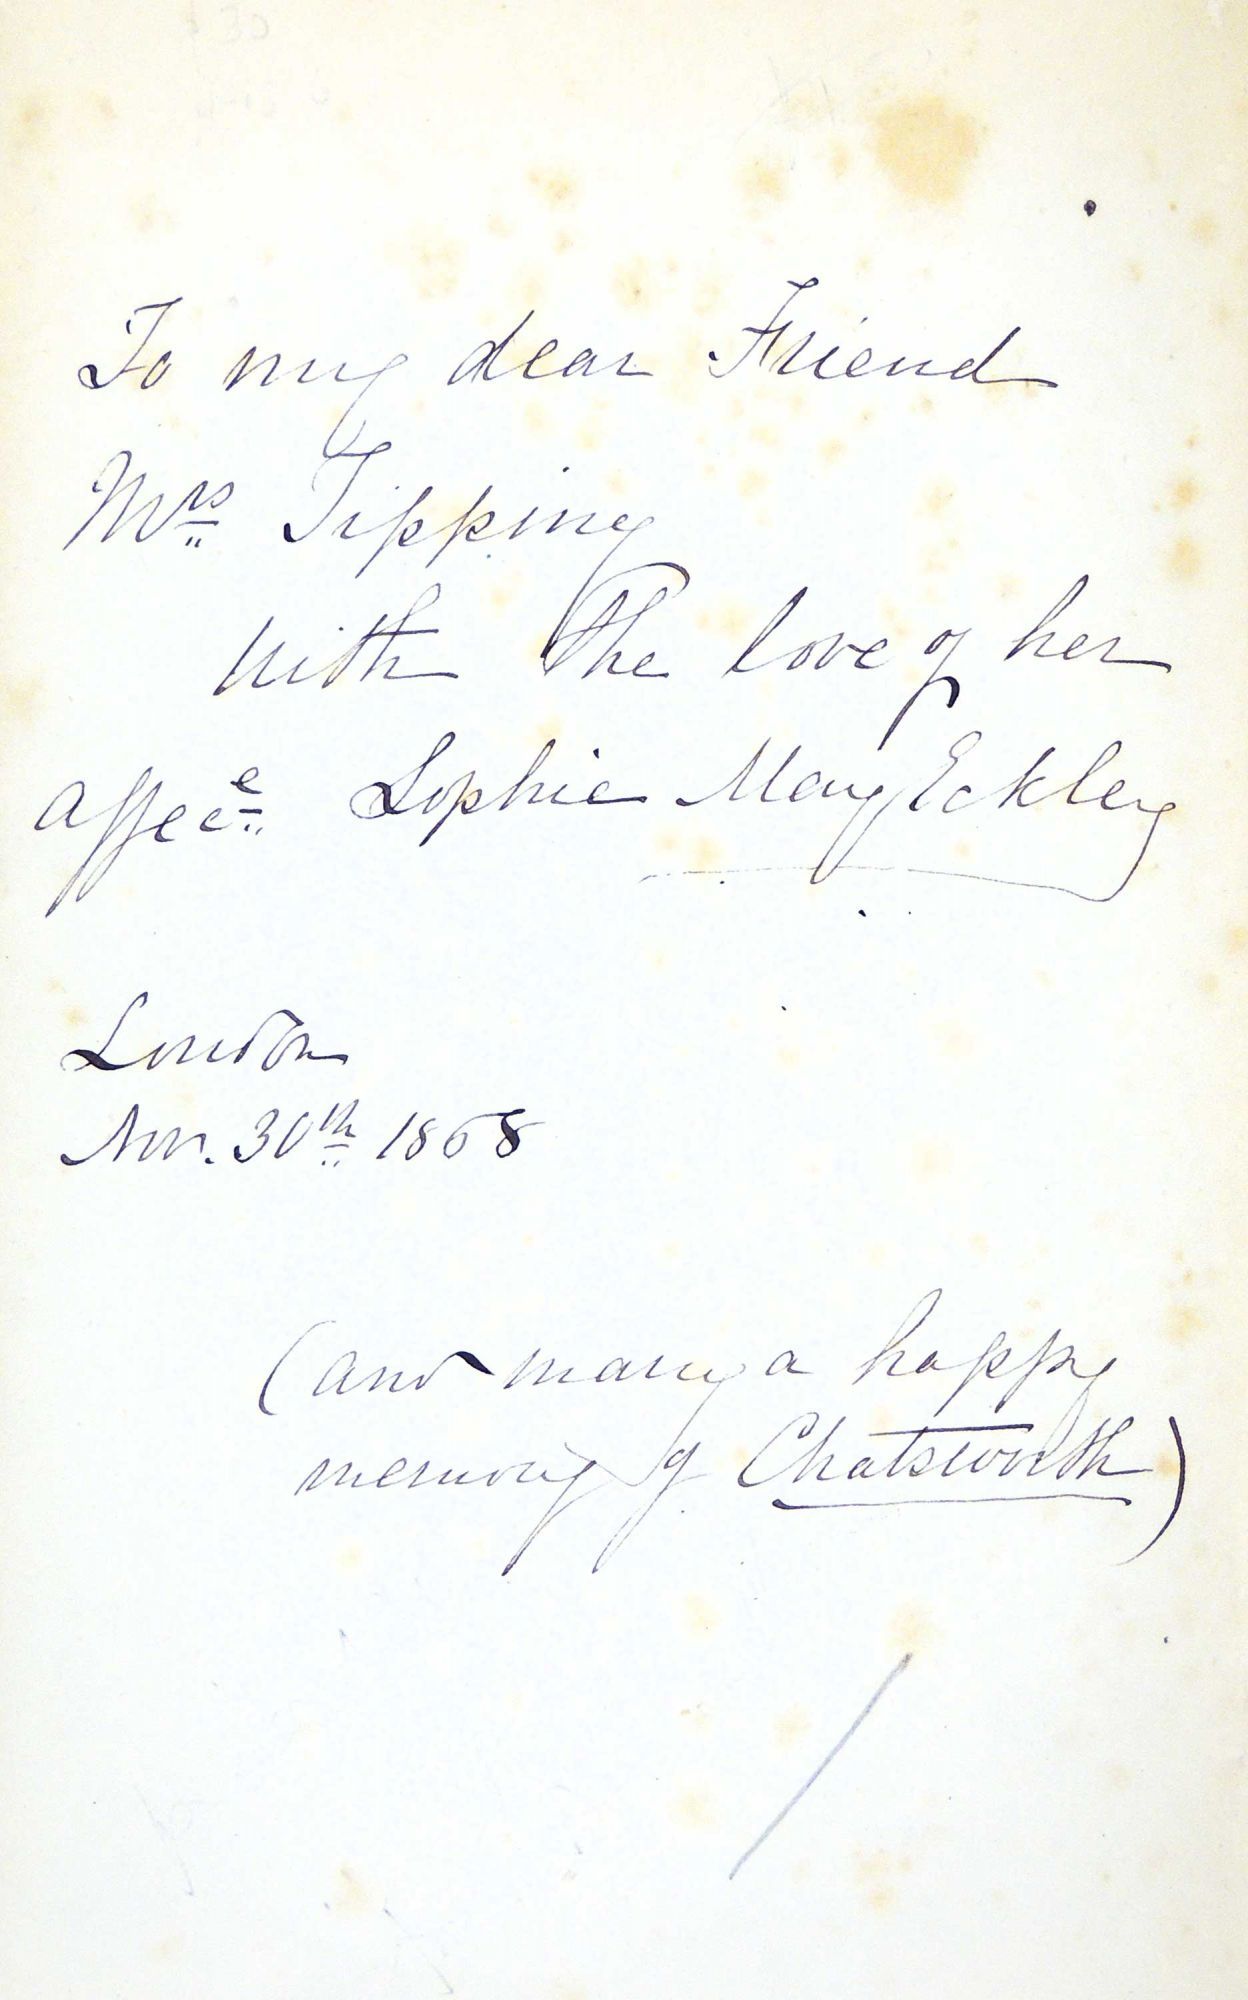 To my dear Friend
Mrs Tipping
with the love of her
affece Sophie May Eckley
London
Nov. 30th 1868
(and many a happy
memory of Chatsworth)